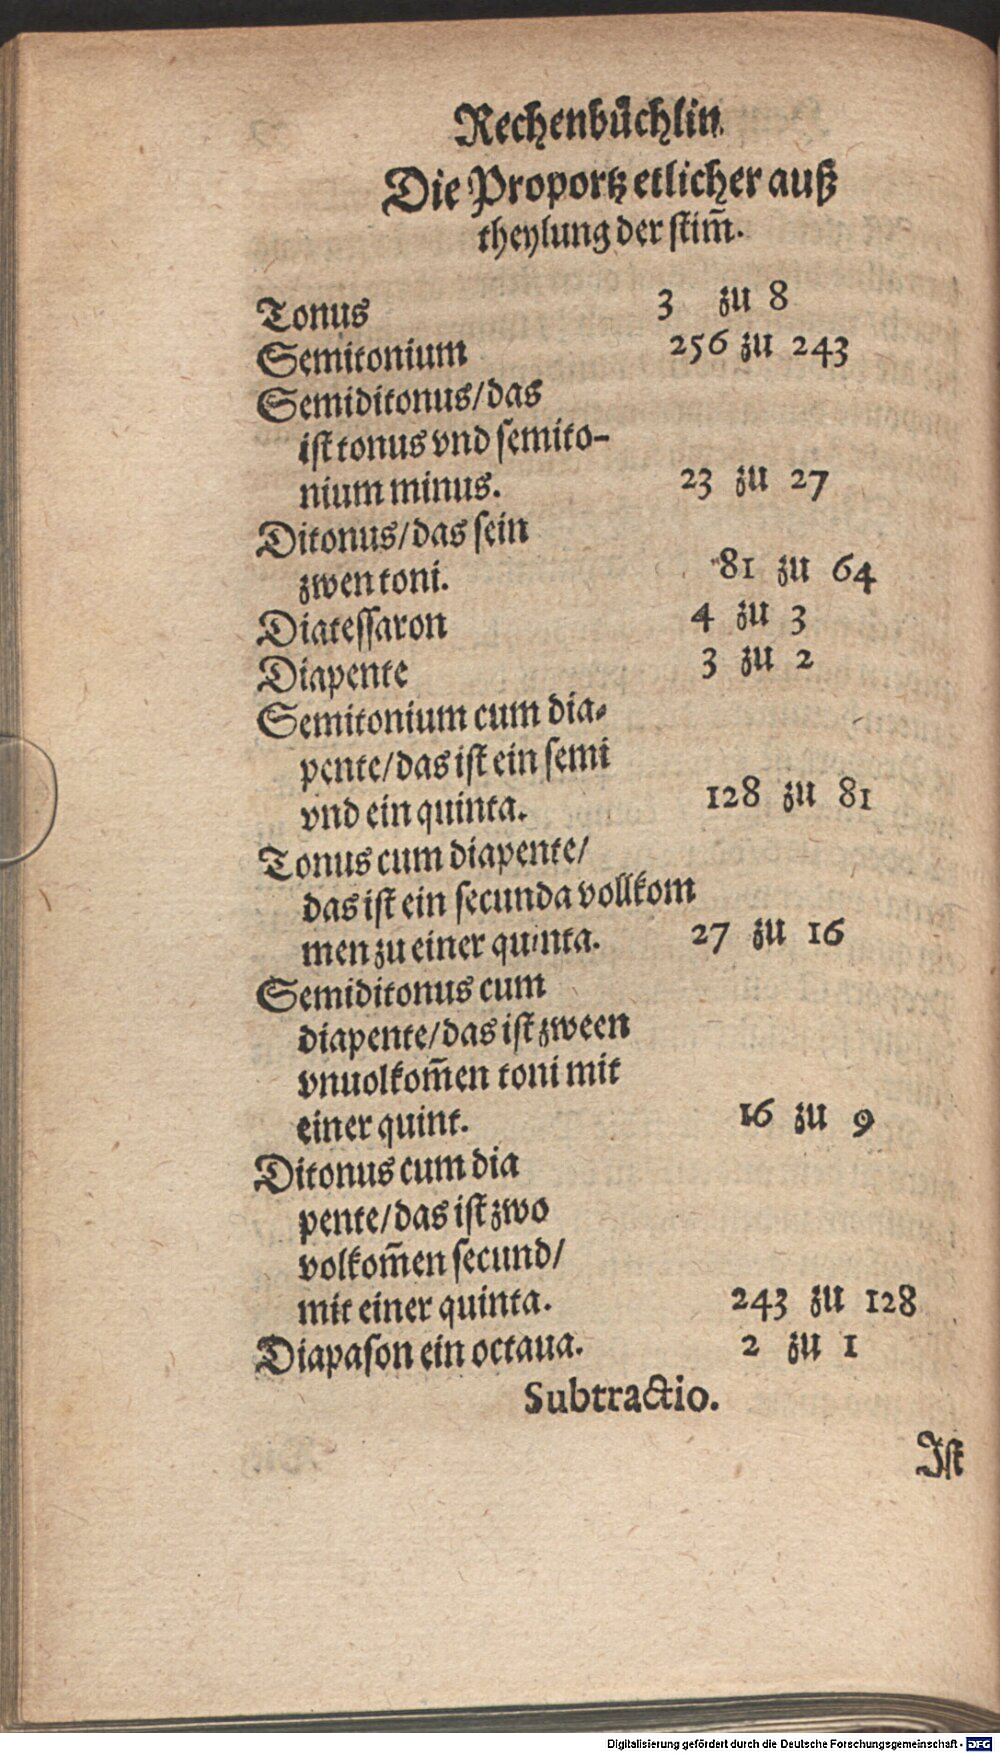 Rechenbüchlin
Die Proportz etlicher auß
theylung der stim̄.
Tonus 3 zu 8
Semitonium 256 zu 243
Semiditonus/das
ist tonus vnd semito-
nium minus. 23 zu 27
Ditonus/das sein
zwen toni. 81 zu 64
Diatessaron 4 zu 3
Diapente 3 zu 2
Semitonium cum dia-
pente/das ist ein semi
vnd ein quinta. 128 zu 81
Tonus cum diapente/
das ist ein secunda vollkom
men zu einer quinta. 27 zu 16
Semiditonus cum
diapente/das ist zween
vnuolkom̄en toni mit
einer quint. 16 zu 9
Ditonus cum dia
pente/das ist zwo
volkom̄en secund/
mit einer quinta. 243 zu 128
Diapason ein octaua. 2 zu 1
Subtractio.
Ist
Digitalisierung gefördert durch die Deutsche Forschungsgemeinschaft - DFG